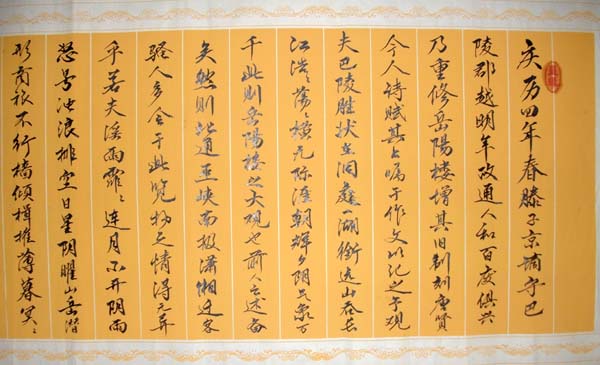 庆历四年春滕子京谪守巴
陵郡越明年政通人和百度俱兴
乃重修岳阳楼增其旧制刻唐贤
今人诗赋其上嘱于作文以记之予观
夫巴陵胜状在洞庭一湖衔远山吞长
江浩々荡々横无际涯朝辉夕阴气象万
千此则岳阳楼之大观也前人之述备
矣然则北通巫峡南极潇湘迁客
骚人多会于此览物之情得无异
乎若夫淫雨霏々连月不开阴雨
怒号浊浪排空日星阴曜山岳潜
形商旅不行樯倾楫摧薄暮冥々